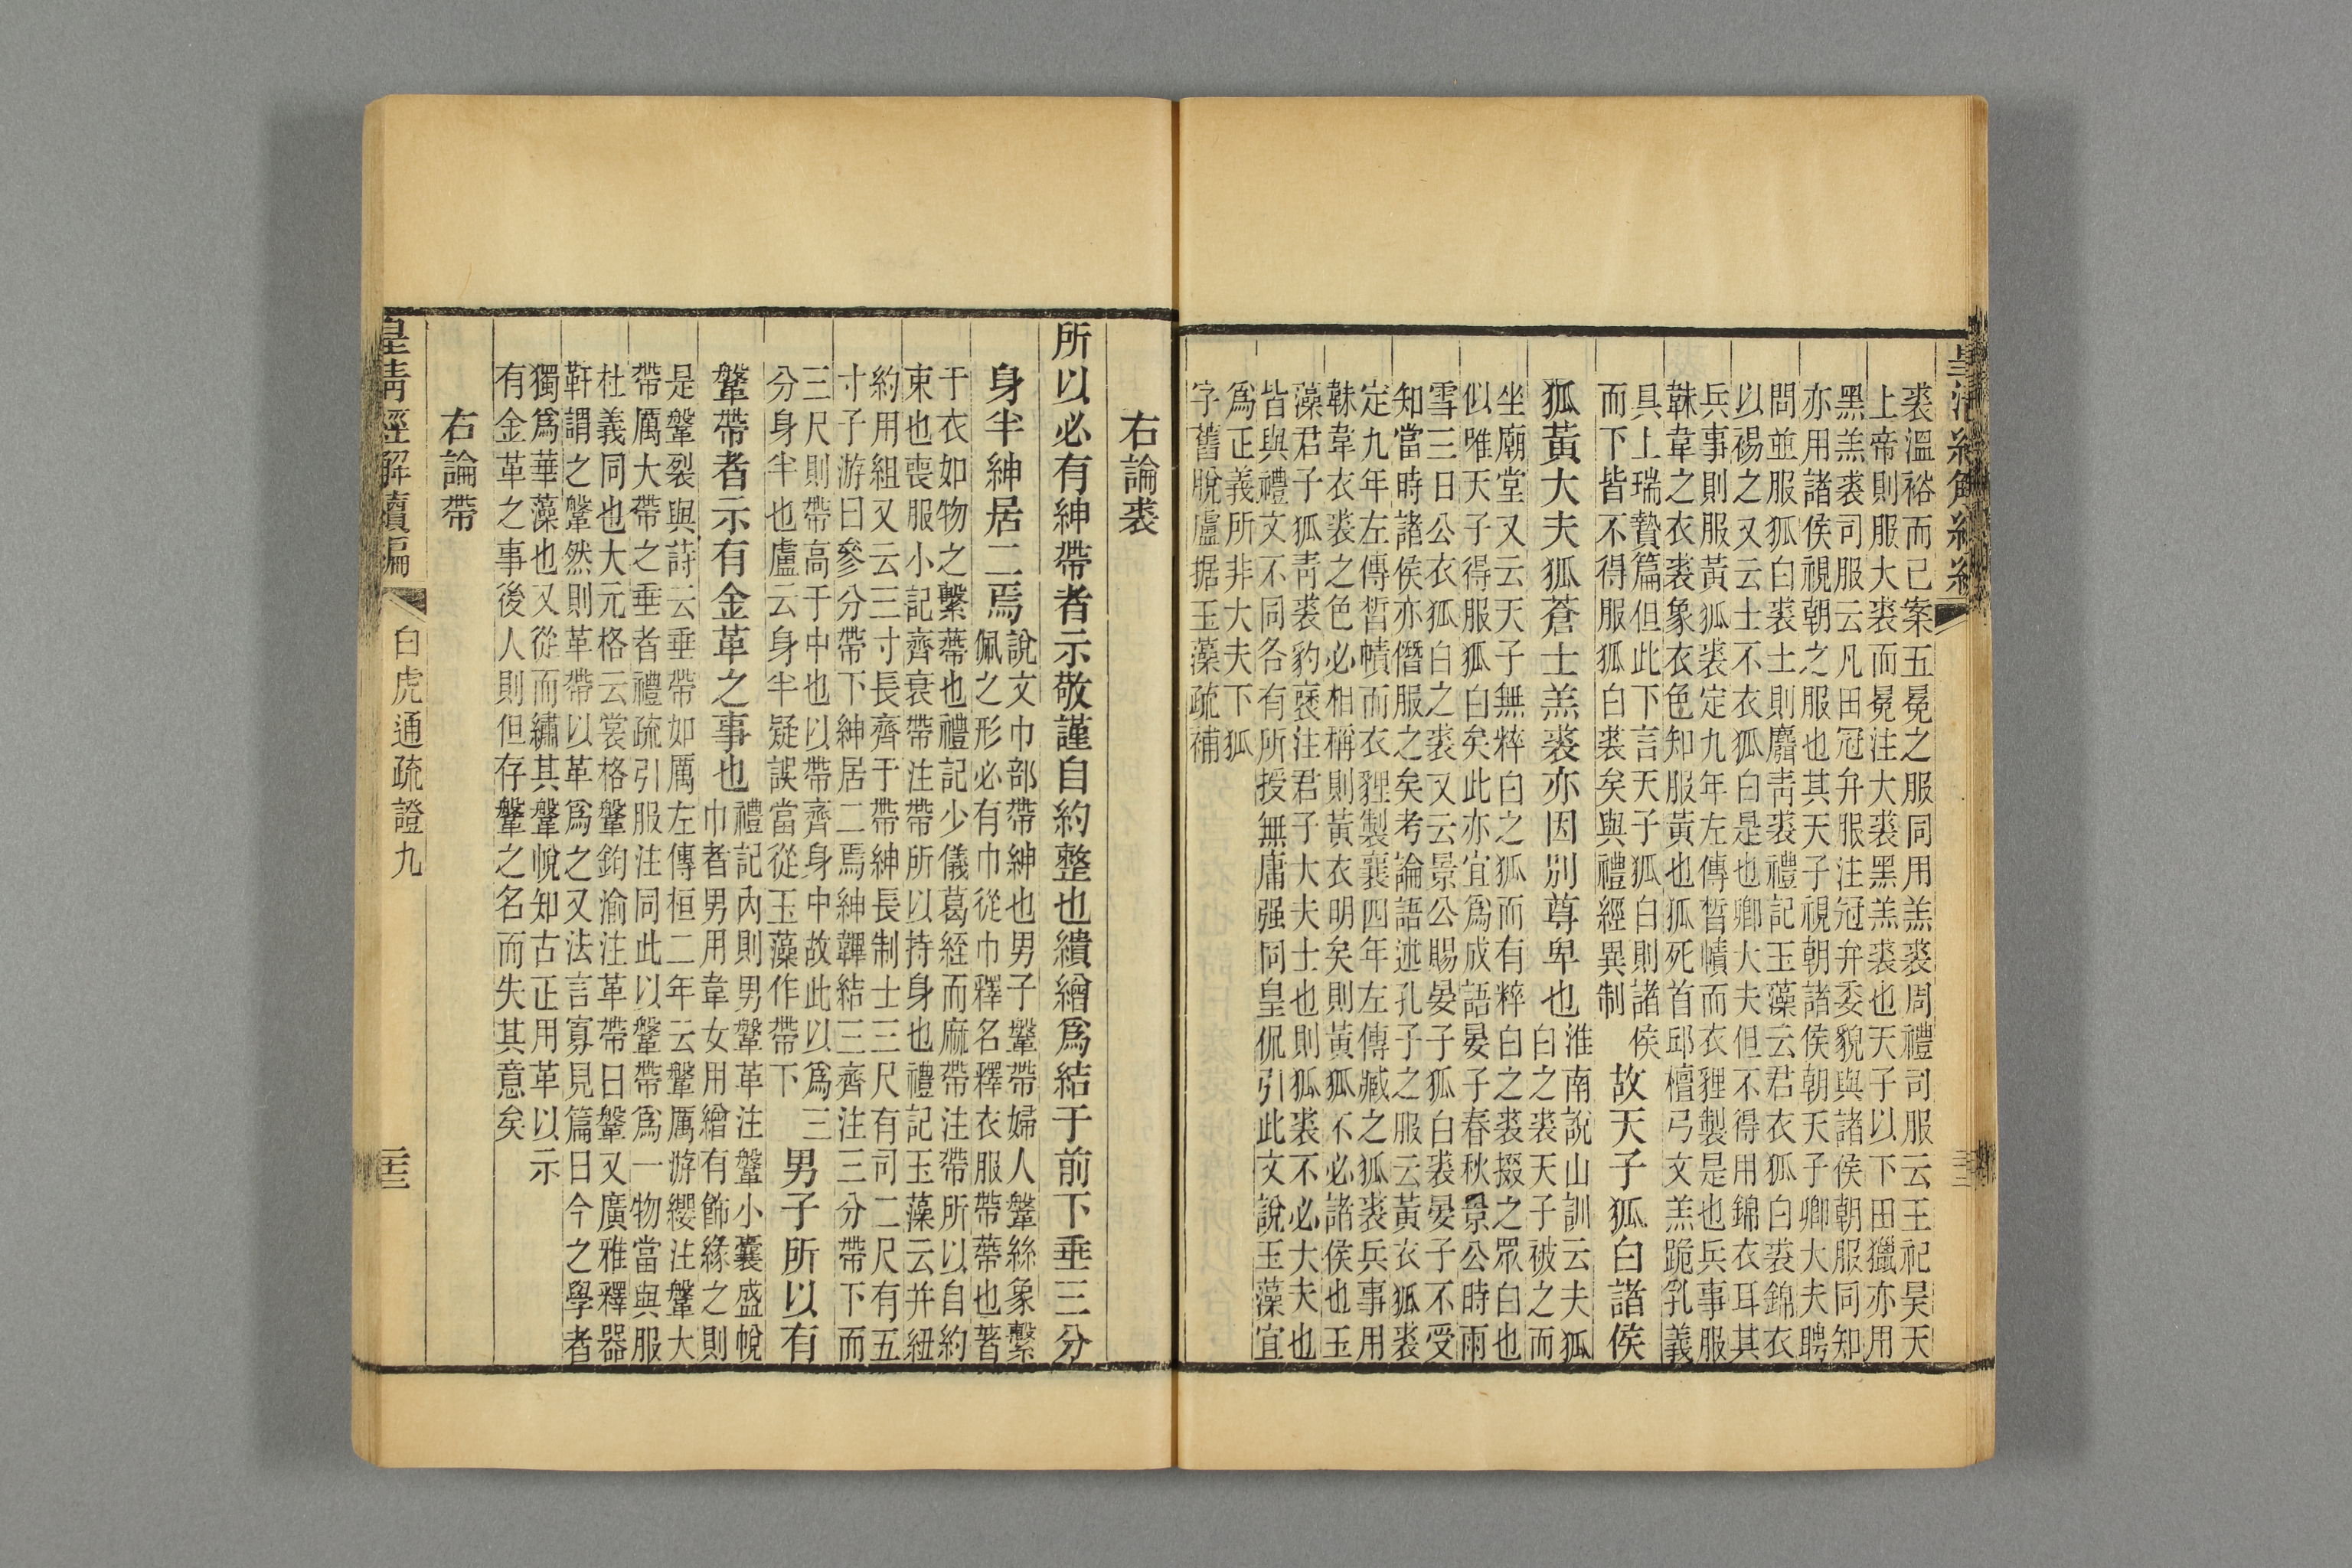 裘溫裕而已案五冕之服同用羔裘周禮司服云王祀昊天
上帝則服大裘而冕注大裘黑羔裘也天子以下田獵亦用
黑羔裘司服云凡田冠弁服注冠弁委貌與諸侯朝服同知
亦用諸侯視朝之服也其天子視朝諸侯朝天子卿大夫聘
問並服狐白裘士則麛青裘禮記玉藻云君衣狐白裘錦衣
以裼之又云士不衣狐白是也卿大夫但不得用錦衣耳其
兵事則服黃狐裘定九年左傳晳幘而衣貍製是也兵事服
韎韋之衣裘象衣色知服黃也狐死首邱檀弓文羔跪乳義
具上瑞贄篇但此下言天子狐白則諸侯
而下皆不得服狐白裘矣與禮經異制
故天子狐白諸侯
狐黃大夫狐蒼士羔裘亦因別尊卑也
淮南說山訓云夫狐
白之裘天子被之而
坐廟堂又云天子無粹白之狐而有粹白之裘掇之眾白也
似唯天子得服狐白矣此亦宜爲成語晏子春秋景公時雨
雪三日公衣狐白之裘又云景公賜晏子狐白裘晏子不受
知當時諸侯亦僭服之矣考論語述孔子之服云黃衣狐裘
定九年左傳晳幘而衣貍製襄四年左傳臧之狐裘兵事用
韎韋衣裘之色必相稱則黃衣明矣則黃狐不必諸侯也玉
藻君子狐青裘豹褎注君子大夫士也則狐裘不必大夫也
皆與禮文不同各有所授無庸强同皇侃引此文說玉藻宜
爲正義所非大夫下狐
字舊脫盧据玉藻疏補
右論裘
所以必有紳帶者示敬謹自約整也繢繒爲結于前下垂三分
身半紳居二焉
說文巾部帶紳也男子鞶帶婦人鞶絲象繫
佩之形必有巾從巾釋名釋衣服帶蔕也著
于衣如物之繫蔕也禮記少儀葛絰而麻帶注帶所以自約
束也喪服小記齊衰帶注帶所以持身也禮記玉藻云并紐
約用組又云三寸長齊于帶紳長制士三尺有司二尺有五
寸子游曰參分帶下紳居二焉紳韠結三齊注三分帶下而
三尺則帶高于中也以帶齊身中故此以爲三
分身半也盧云身半疑誤當從玉藻作帶下
男子所以有
鞶帶者示有金革之事也
禮記內則男鞶革注鞶小囊盛帨
巾者男用韋女用繒有飾緣之則
是鞶裂與詩云垂帶如厲左傳桓二年云鞶厲游纓注鞶大
帶厲大帶之垂者禮疏引服注同此以鞶帶爲一物當與服
杜義同也大元格云裳格鞶鉤渝注革帶曰鞶又廣雅釋器
䩞謂之鞶然則革帶以革爲之又法言寡見篇曰今之學者
獨爲華藻也又從而繡其鞶帨知古正用革以示
有金革之事後人則但存鞶之名而失其意矣
右論帶
皇清經解續編
白虎通疏證九